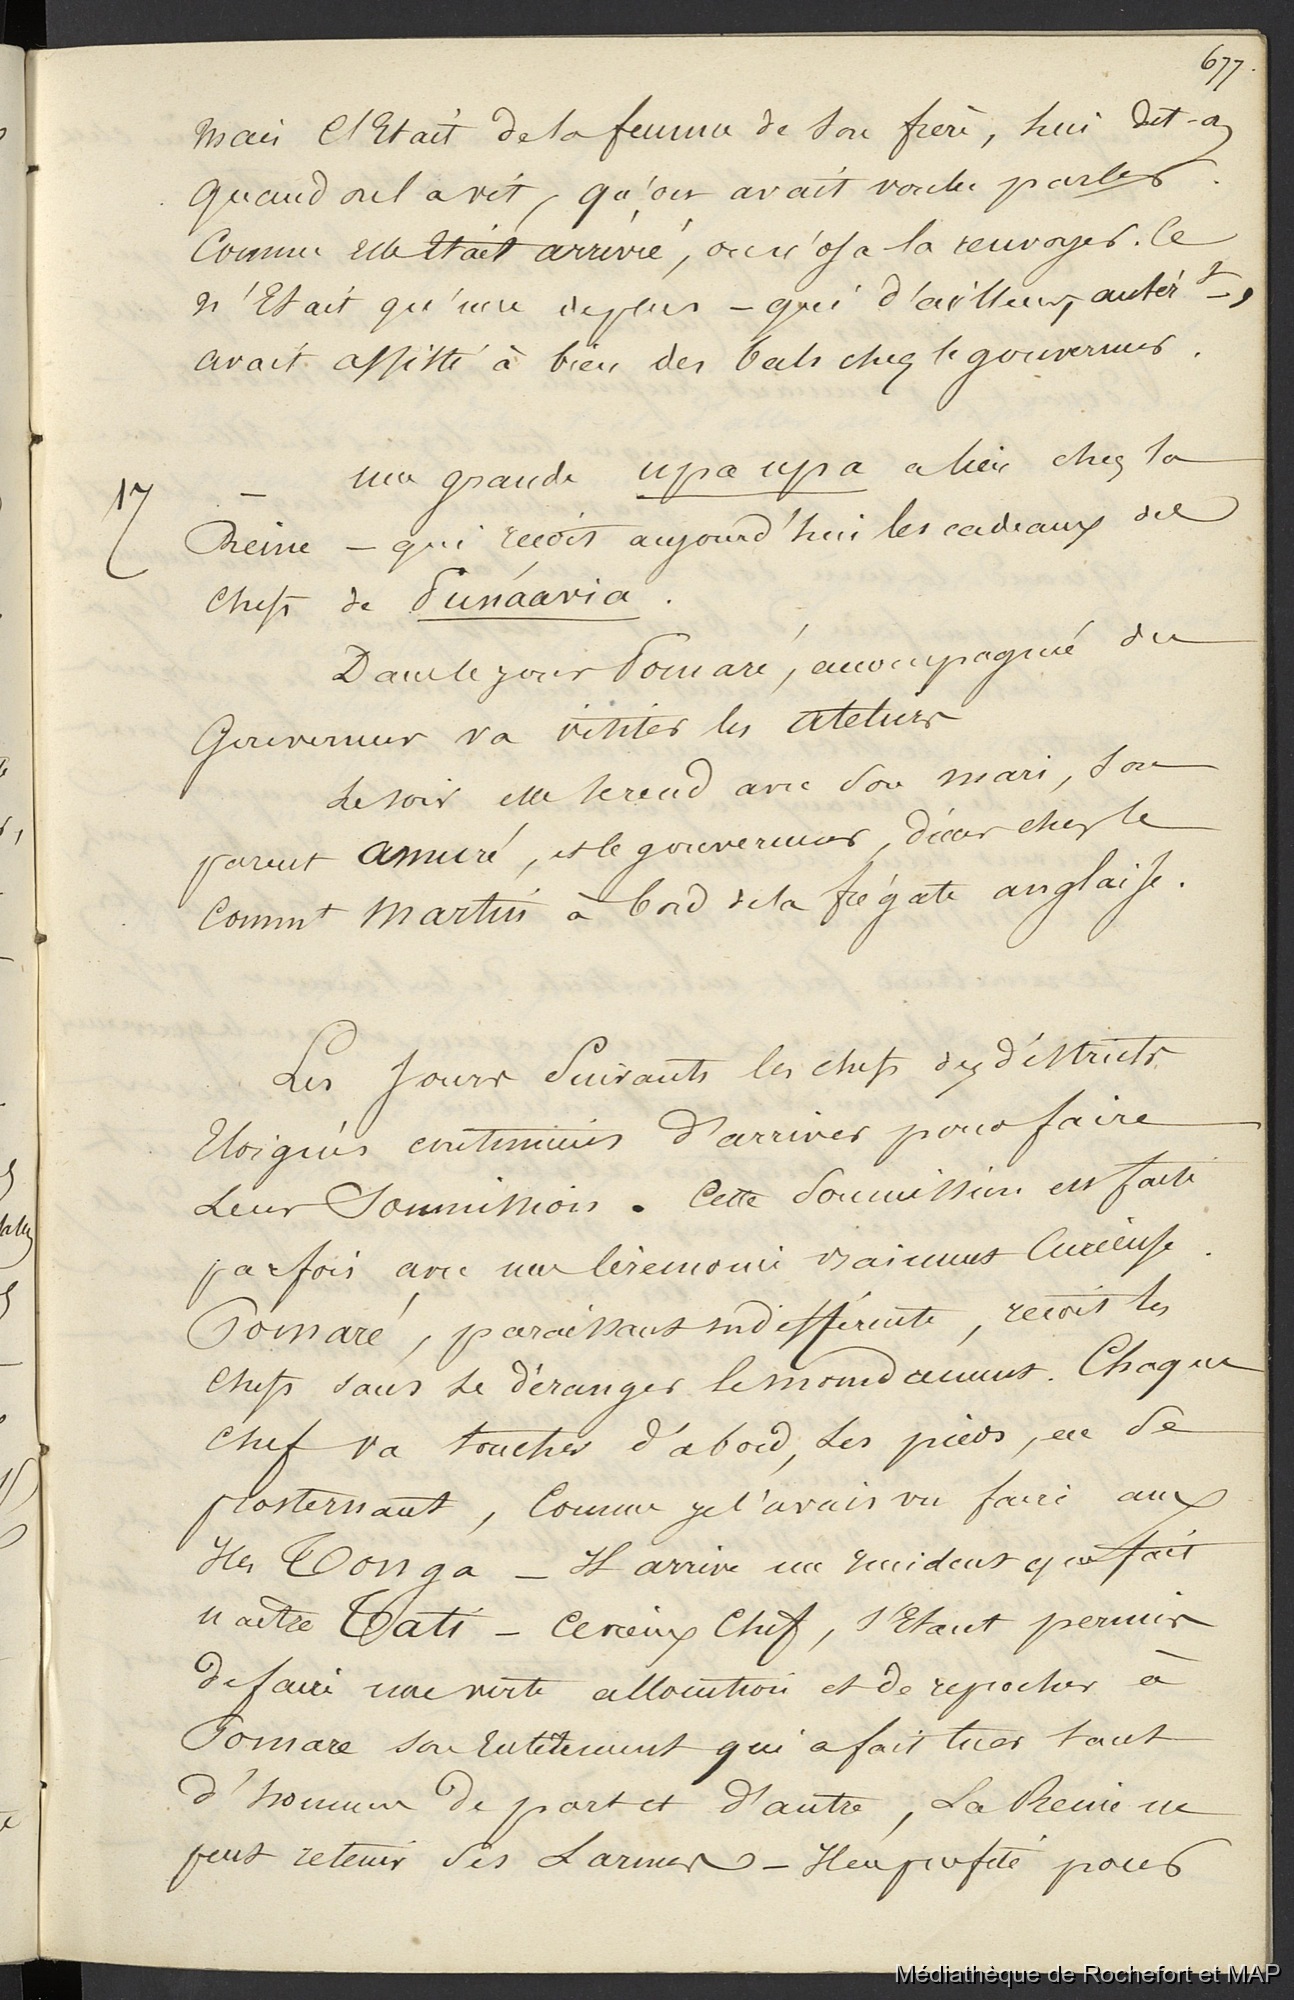 677.
mais c'était de la femme de son frère, lui dit-on
quand on la vit, qu'on avait voulu parler.
Comme elle était arrivée, on n'osa la renvoyer. Ce
n'était qu'une de plus – qui d'ailleurs, antért,
avait assisté à bien des bals chez le gouverneur.
17 – une grande upa upa a lieu chez la
Reine – qui reçoit aujourd'hui les cadeaux des
chefs de Punáavia.
Dans le jour Pomaré, accompagnée du
Gouverneur va visiter les ateliers
Le soir elle se rend avec son mari, son
parent Amuré, et le gouverneur, diner chez le
Commt Martin à bord de la frégate anglaise.
Les jours suivants les chefs des districts
éloignés continuent d'arriver pour faire
leur soumission. Cette soumission est faite
parfois avec une cérémonie vraiment curieuse.
Pomaré, paraissant indifférente, reçoit les
chefs sans se déranger le moindrement. Chaque
chef va toucher d'abord, ses pieds, en se
prosternant, comme je l'avais vu faire aux
Iles Tonga – Il arrive un incident que fait
naitre Tati – Ce vieux chef, s'étant permis
de faire une verte allocution et de reprocher à
Pomare son entêtement qui a fait tuer tant
d'hommes de part et d'autre, La Reine ne
peut retenir ses larmes – Il en profite pour
Médiathèque de Rochefort et MAP